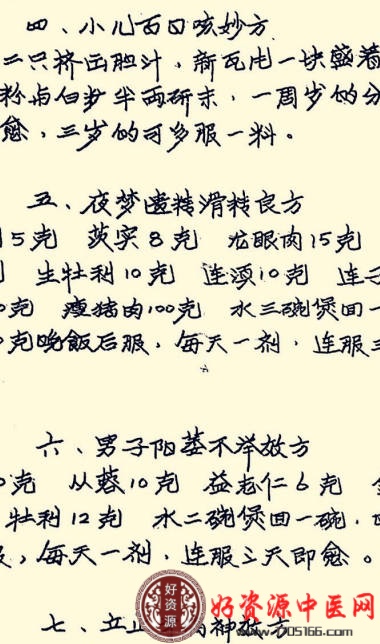 四、小儿百日咳妙方
二只挤出胆汁，新瓦甩一块盛着
粉与白步半两研末，一周岁的分
愈，三岁的可多服一料。
五、夜梦遗精滑精良方
5克 茨实8克 龙眼肉15克
生牡利10克 连湏10克 连子
0克 瘦猪肉100克 水三碗煲回一
0克晚飯后服，每天一剂，连服三
六、男子阳萎不举效方
0克 从蓉10克 益志仁6克
牡利12克 水二碗煲回一碗，
服，每天一剂，连服三天即愈。
七、立止 神效方
好资源
好资源中医网
www.765166.com